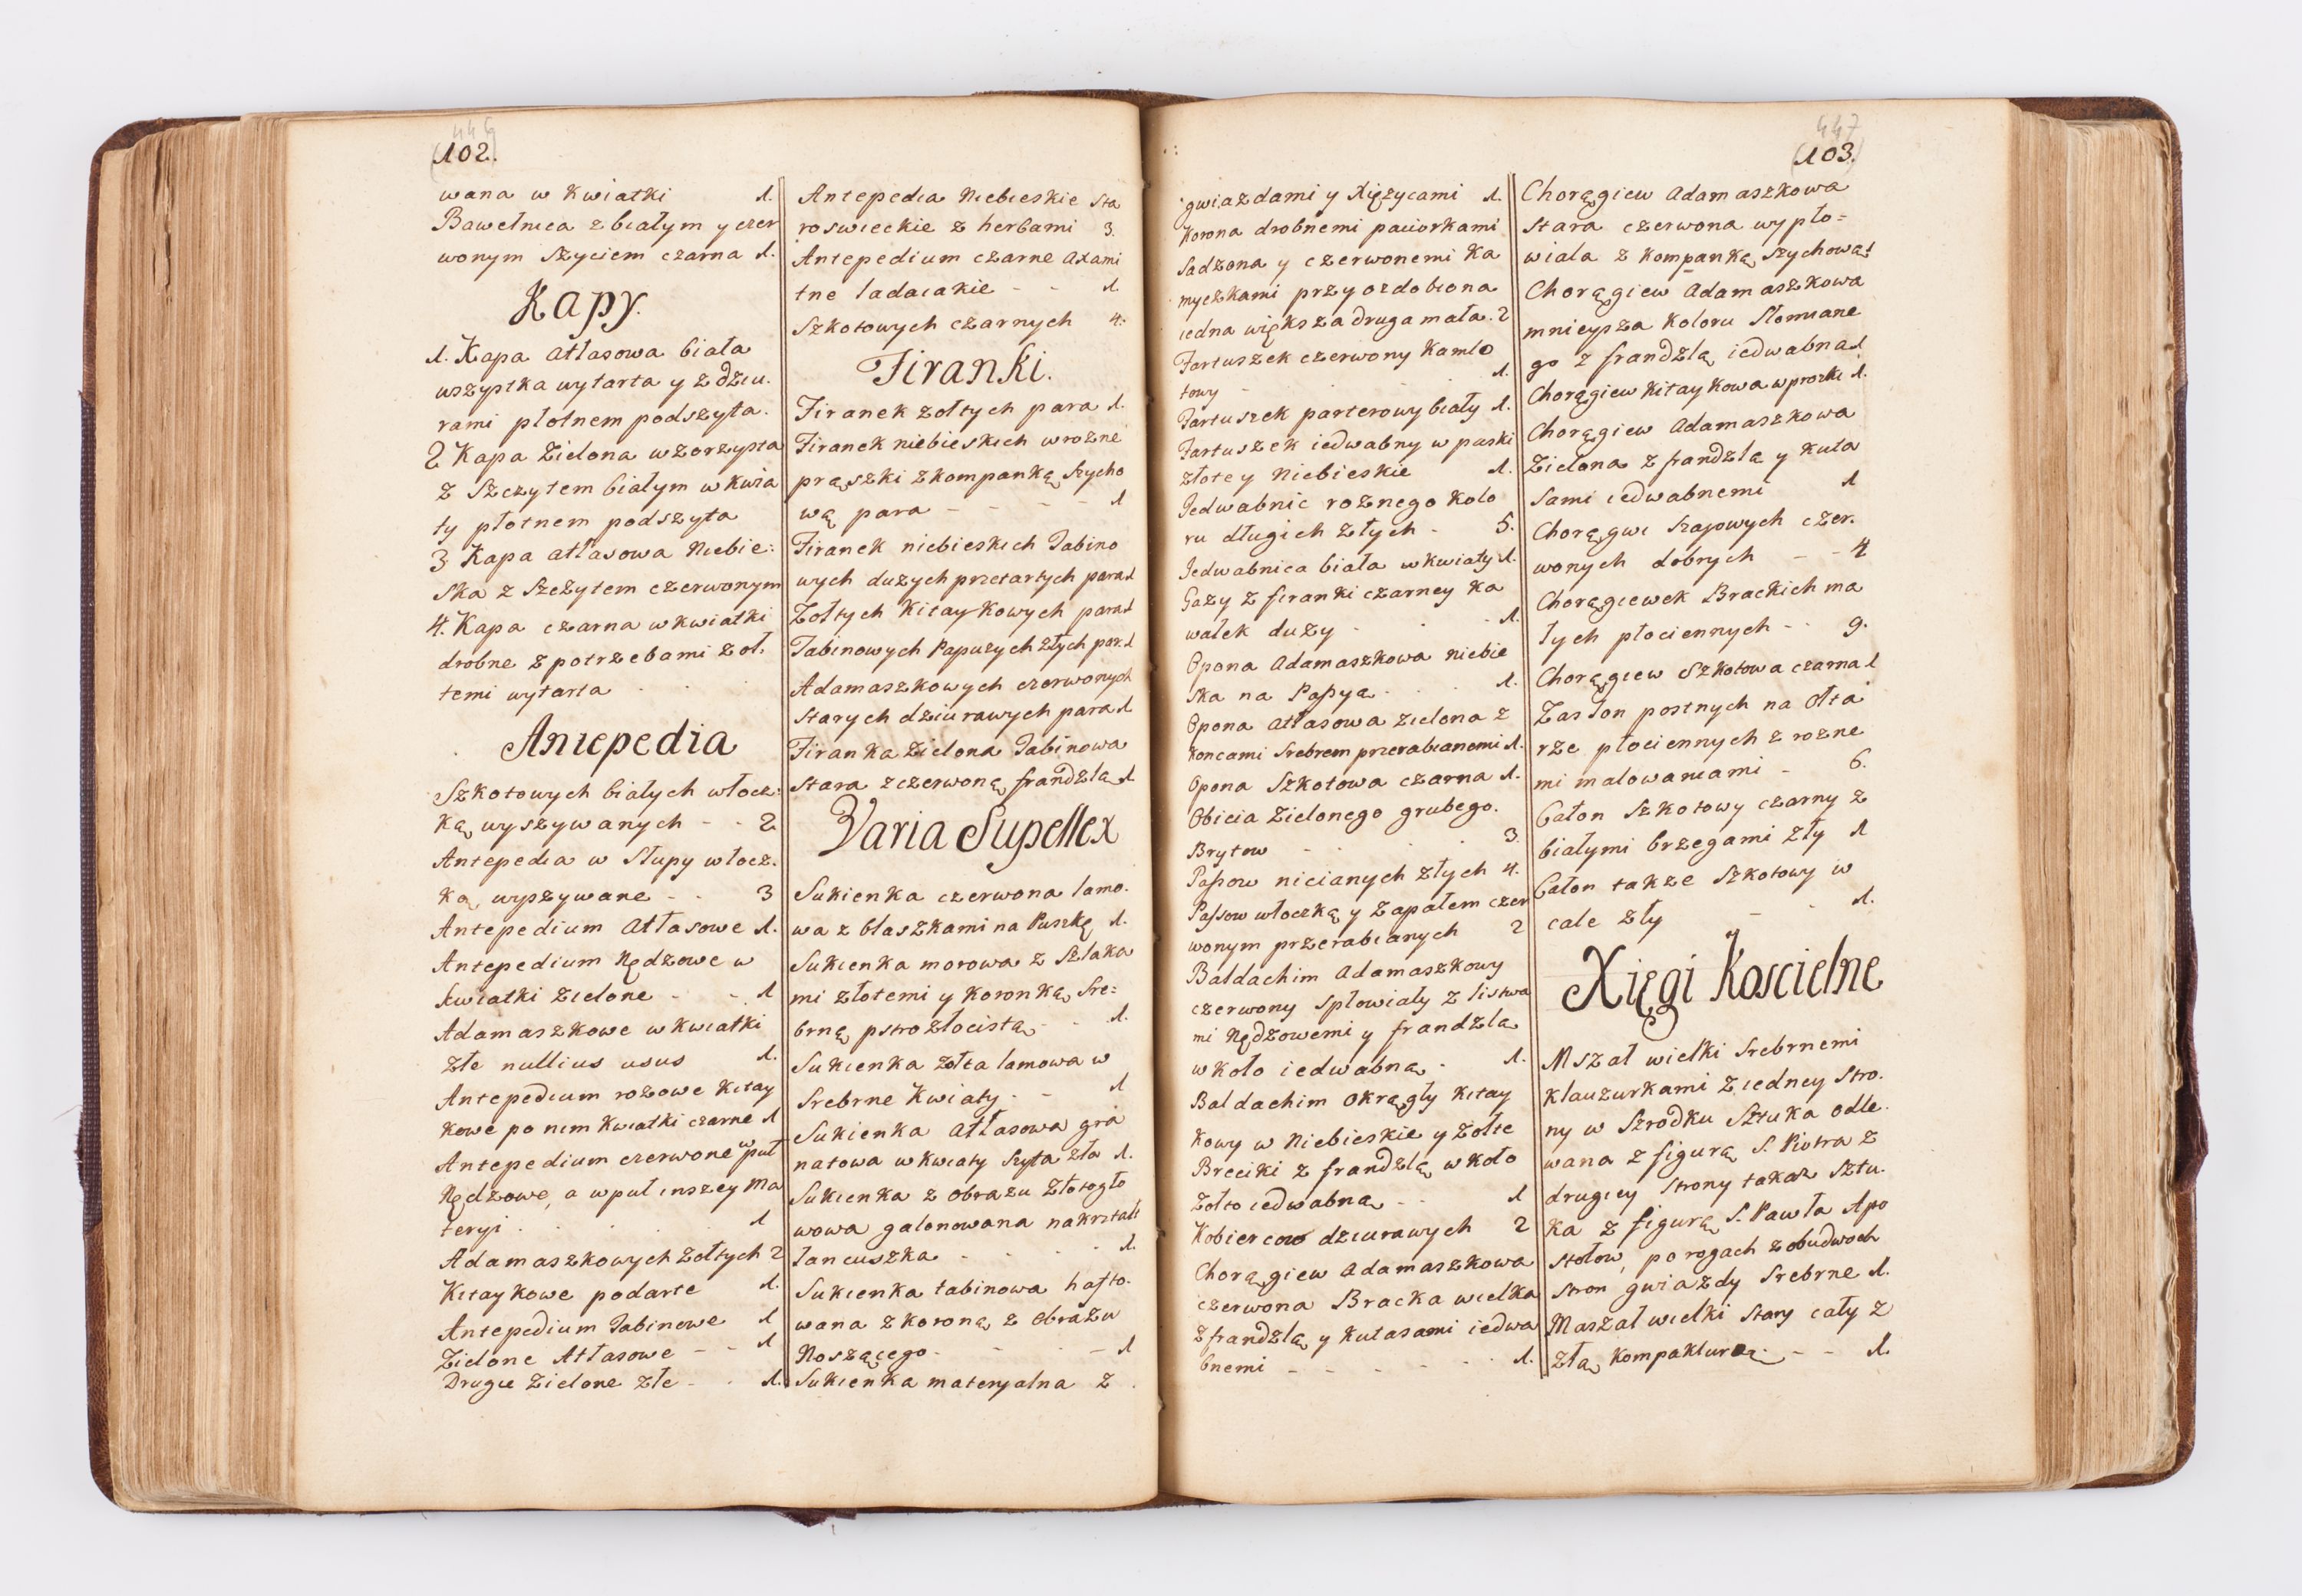 446
102.
wana w Kwiatki 1.
Bawełnica z białym y czer
wonym Szyciem czarna 1.
Kapy.
1. Kapa Atłasowa biała
wszystka wytarta y z dziu.
rami płotnem podszyta.
2 Kapa Zielona wzorzysta
z Szczytem białym w Kwia
ty płotnem podszyta
3 Kapa atłasowa Niebie:
ska z Szczytem czerwonym
4. Kapa czarna w kwiatki
drobne z potrzebami żoł.
temi wytarta
Antepedia
Szkotowych białych włocz:
Ką wyszywanych - - 2
Antepedia w Słupy włocz.
Ką wyszywane - - 3
Antepedium Atłasowe 1.
Antepedium Nędzowe w
kwiatki zielone - - 1
Adamaszkowe w kwiatki
złe nullius usus 1.
Antepedium rożowe Kitay
Kowe po nim kwiatki czarne 1
Antepedium czerwone w puł
Nędzowe, a w puł inszey Ma
teryi . . . . 1
Adamaszkowych żołtych 2
Kitaykowe podarte 1.
Antepedium Tabinowe 1
Zielone Atłasowe - - 1
Drugie Zielone złe - . 1.
Antepedia Niebieskie Sta
roswieckie z herbami 3.
Antepedium czarne Axami
tne ladaiakie - - 1.
Szkotowych czarnych 4:
Firanki.
Firanek żołtych para 1.
Firanek niebieskich w rożne
prąszki z kompanką Szycho
wą para - - - 1
Firanek niebieskich Tabino
wych dużych przetartych para 1
Żołtych Kitaykowych para 1
Tabinowych Papużych złych par. 1
Adamaszkowych czerwonych
Starych dziurawych para 1
Firanka Zielona Tabinowa
stara z czerwoną frandzlą 1
Varia Supellex
Sukienka czerwona lamo.
wa z blaszkami na Puszkę 1.
Sukienka morowa z Szlaka
mi złotemi y Koronką Sre:
brną pstrozłocistą - . 1.
Sukienka żołta lamowa w
Srebrne Kwiaty . - 1
Sukienka Atłasowa gra
natowa w kwiaty Szyta zła 1.
Sukienka z obrazu złotogło
wowa galonowana na krztałt
łancuszka - . . . 1.
Sukienka tabinowa hafto.
wana z koroną z Obrazu
Noszącego . - - 1
Sukienka materyalna z
447
103.
gwiazdami y Xiężycami 1.
Korona drobnemi paciorkami
Sadzona y czerwonemi Ka
myczkami przyozdobiona
iedna większa druga mała. 2
Fartuszek czerwony Kamlo
towy - . . . 1.
Fartuszek parterowy biały 1.
Fartuszek iedwabny w paski
złote y Niebieskie 1.
Jedwabnic rożnego kolo
ru długich złych - 5.
Jedwabnica biała w kwiaty 1.
Gazy z firanki czarney Ka
wałek duży . . . 1.
Opona Adamaszkowa niebie
ska na Passyą . . . 1.
Opona Atłasowa zielona z
Koncami Srebrem przerabianemi 1.
Opona Szkotowa czarna 1.
Obicia Zielonego grubego.
Brytow - . . . 3.
Passow nicianych złych 4.
Passow włoczką y Zapałem czer
wonym przerabianych 2
Baldachim Adamaszkowy
czerwony spłowiały z listwa
mi Nędzowemi y frandzlą
w koło iedwabną . 1.
Baldachim okrągły Kitay
kowy w Niebieskie y żołte
Breciki z frandzlą w koło
żołto iedwabną - . 1
Kobiercow dziurawych 2
Chorągiew Adamaszkowa
czerwona Bracka wielka
z frandzlą y kutasami iedwa
bnemi - - - - . . 1.
Chorągiew Adamaszkowa
stara czerwona wypło=
wiala z Kompanką Szychową 1
Chorągiew Adamaszkowa
mnieysza koloru Słomiane
go z frandzlą iedwabną 1
Chorągiew Kitaykowa w prozki 1.
Chorągiew Adamaszkowa
Zielona z frandzlą y kuta
sami iedwabnemi 1
Chorągwi Szajowych czer.
wonych dobrych - - 4
Chorągiewek Brackich ma
łych płociennych - . 9.
Chorągiew Szkotowa czarna 1
Zasłon postnych na Ołta
rze płociennych z rożne
mi malowaniami - 6.
Całon Szkotowy czarny z
białymi brzegami zły 1
Całon także Szkotowy w
cale zły - . 1.
Xięgi Koscielne
Mszał wielki Srebrnemi
Klauzurkami z iedney Stro.
ny w Szrodku Sztuka odle.
wana z figurą S. Piotra z
drugiey strony takaż Sztu.
Ka z figurą S. Pawła Apo
stołow, po rogach z obudwoch
stron gwiazdy Srebrne 1.
Maszał wielki stary cały z
złą Kompakturą . - - 1.